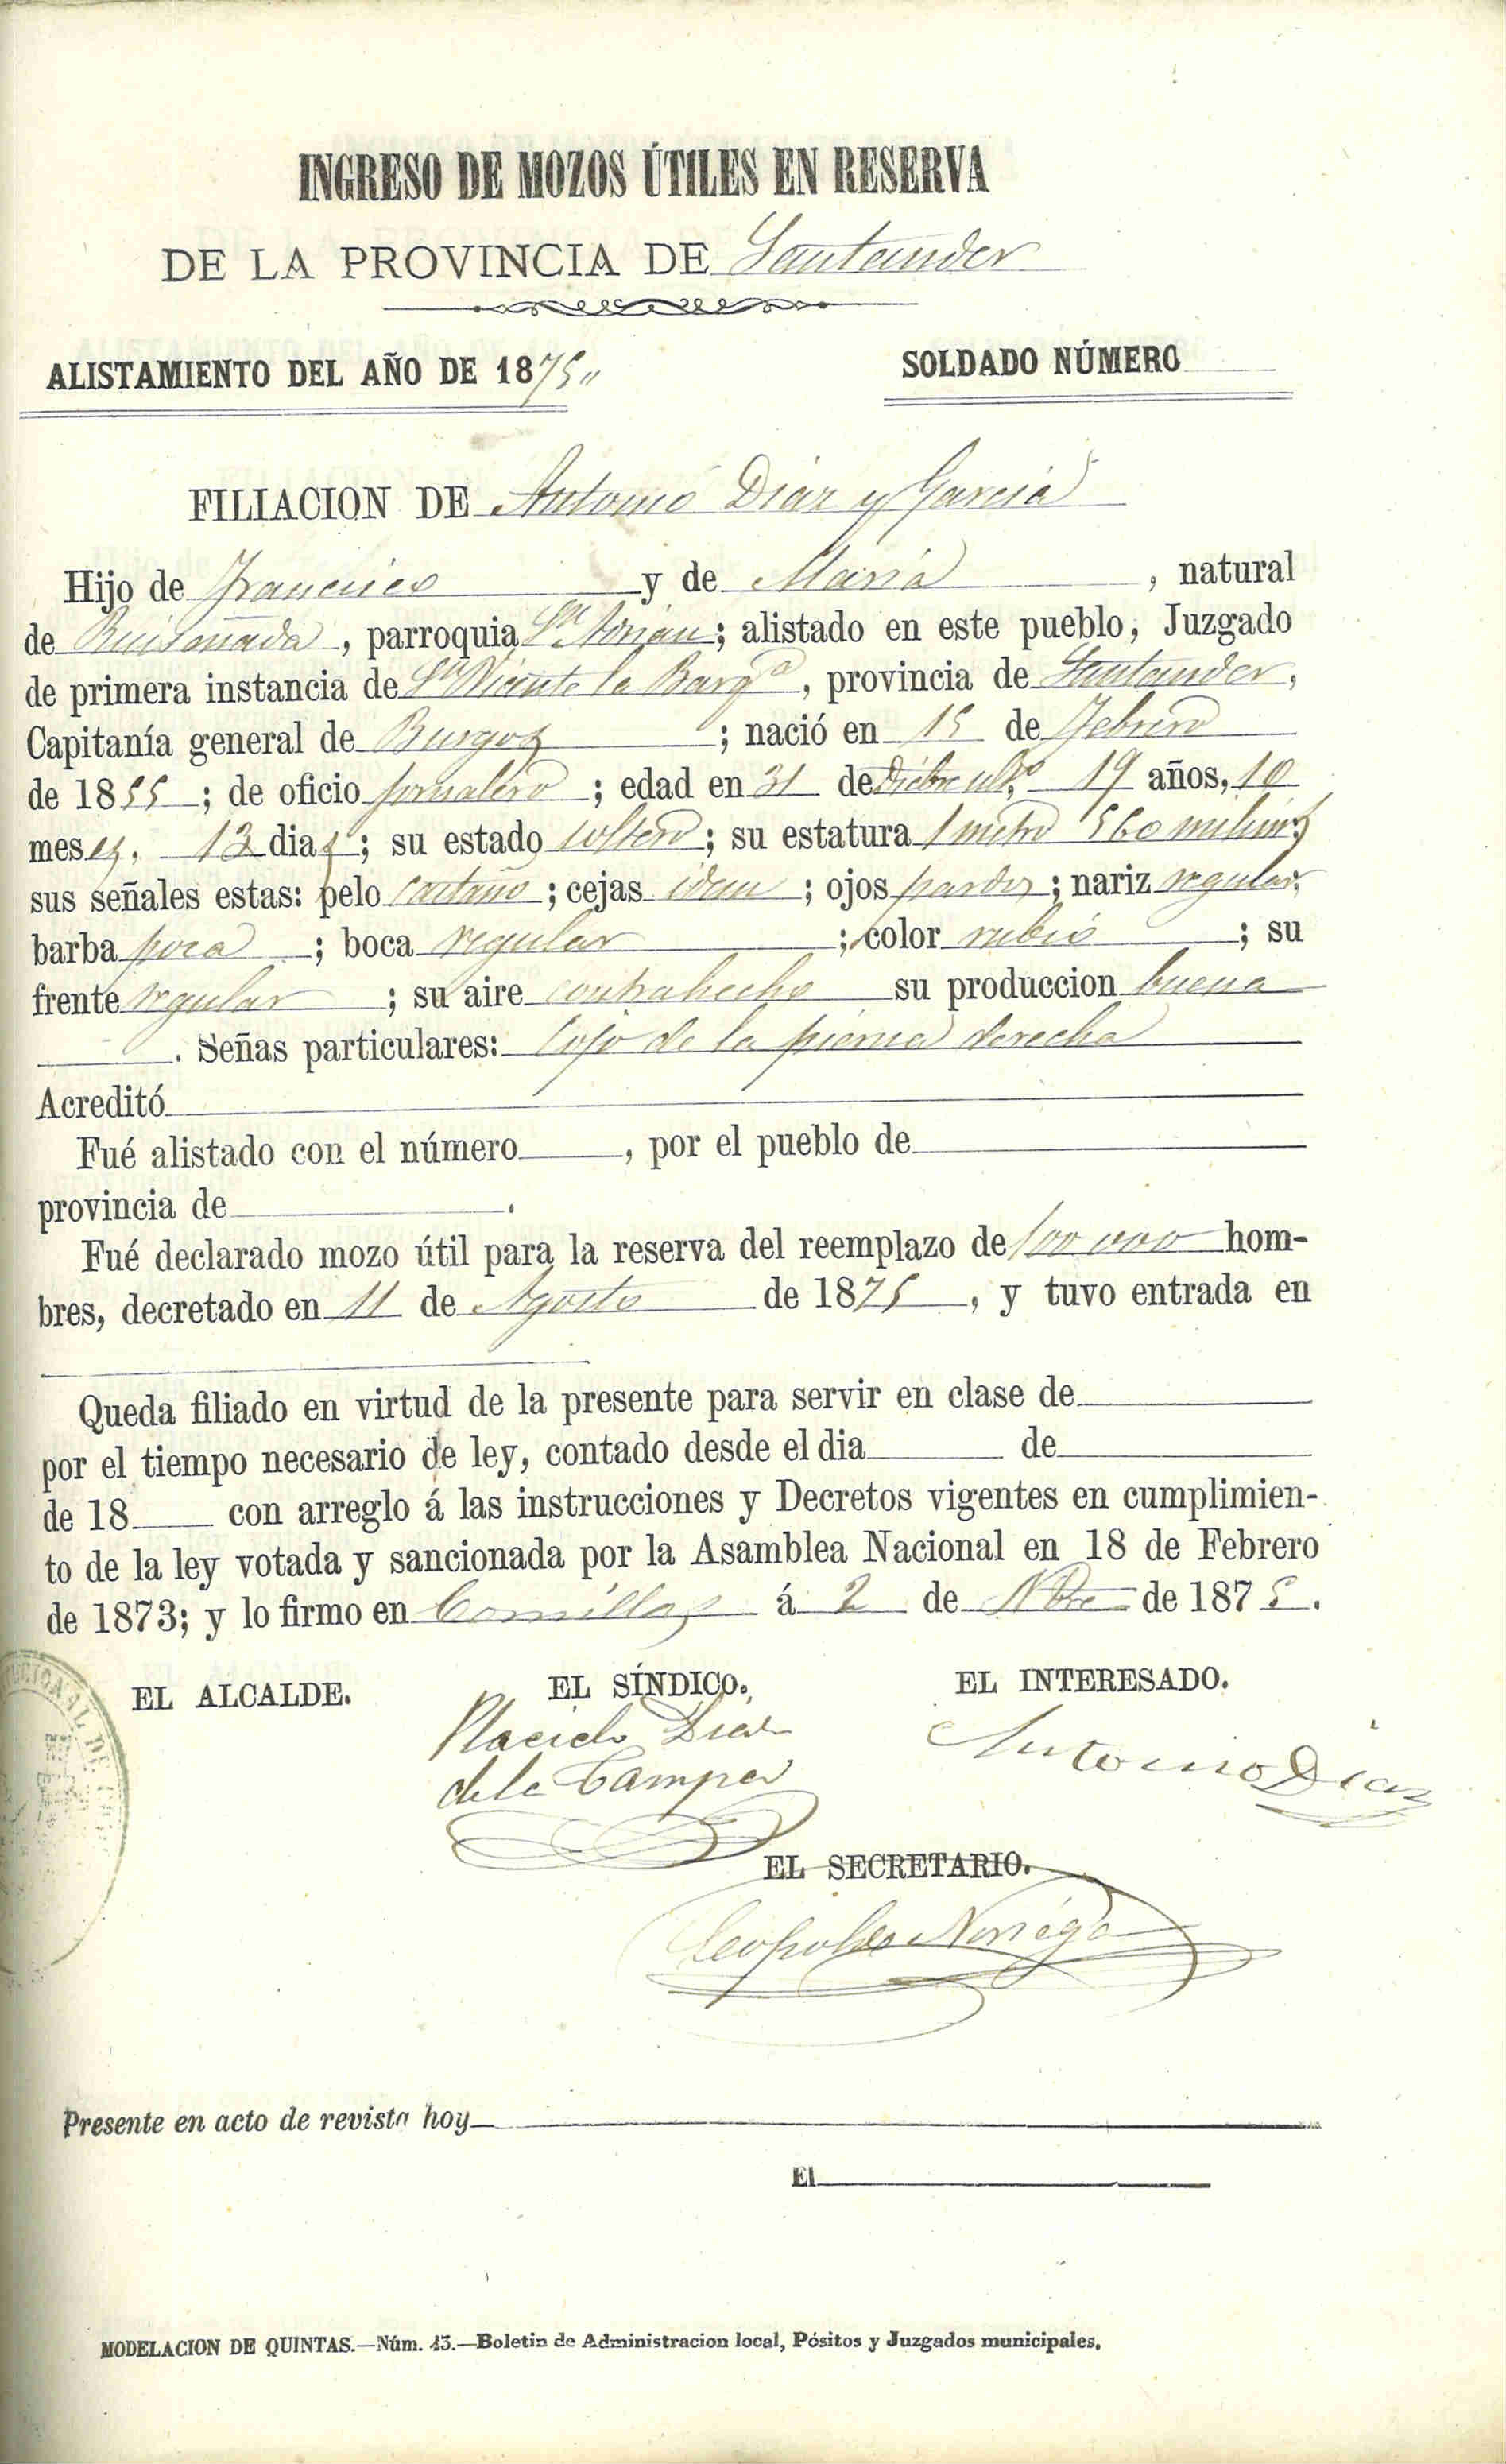 INGRESO DE MOZOS ÚTILES EN RESERVA
DE LA PROVINCIA DE Santander
ALISTAMIENTO DEL AÑO DE 1875,,
SOLDADO NÚMERO
FILIACION DE Antonio Diaz y Garcia
Hijo de Francisco y de Maria, natural
de Ruiseñada, parroquia Sn. Adrian; alistado en este pueblo, Juzgado
de primera instancia de Sn Vicente la Barqa, provincia de Santander,
Capitanía general de Burgos; nació en 15 de Febrero
de 1855; de oficio jornalero; edad en 31 de Dicbre ulto. 19 años, 10
meses, 13 dias; su estado soltero; su estatura 1 metro 560 milims
sus señales estas: pelo castaño; cejas idem; ojos pardos; nariz regular,
barba poca; boca regular; color rubio; su
frente regular; su aire contrahecho su produccion buena
. Señas particulares: Cojo de la pierna derecha
Acreditó
Fué alistado con el número , por el pueblo de
provincia de .
Fué declarado mozo útil para la reserva del reemplazo de 100 000 hom-
bres, decretado en 11 de Agosto de 1875, y tuvo entrada en
Queda filiado en virtud de la presente para servir en clase de
por el tiempo necesario de ley, contado desde el dia de
de 18 con arreglo á las instrucciones y Decretos vigentes en cumplimien-
to de la ley votada y sancionada por la Asamblea Nacional en 18 de Febrero
de 1873; y lo firmo en Comillas á 2 de Nbre de 1875.
EL ALCALDE.
EL SÍNDICO.
EL INTERESADO.
Placido Diaz
de la Campa
Antonio Diaz
EL SECRETARIO.
Leopoldo Noriega
Presente en acto de revista hoy
El
MODELACION DE QUINTAS.—Núm. 15.—Boletin de Administracion local, Pósitos y Juzgados municipales.